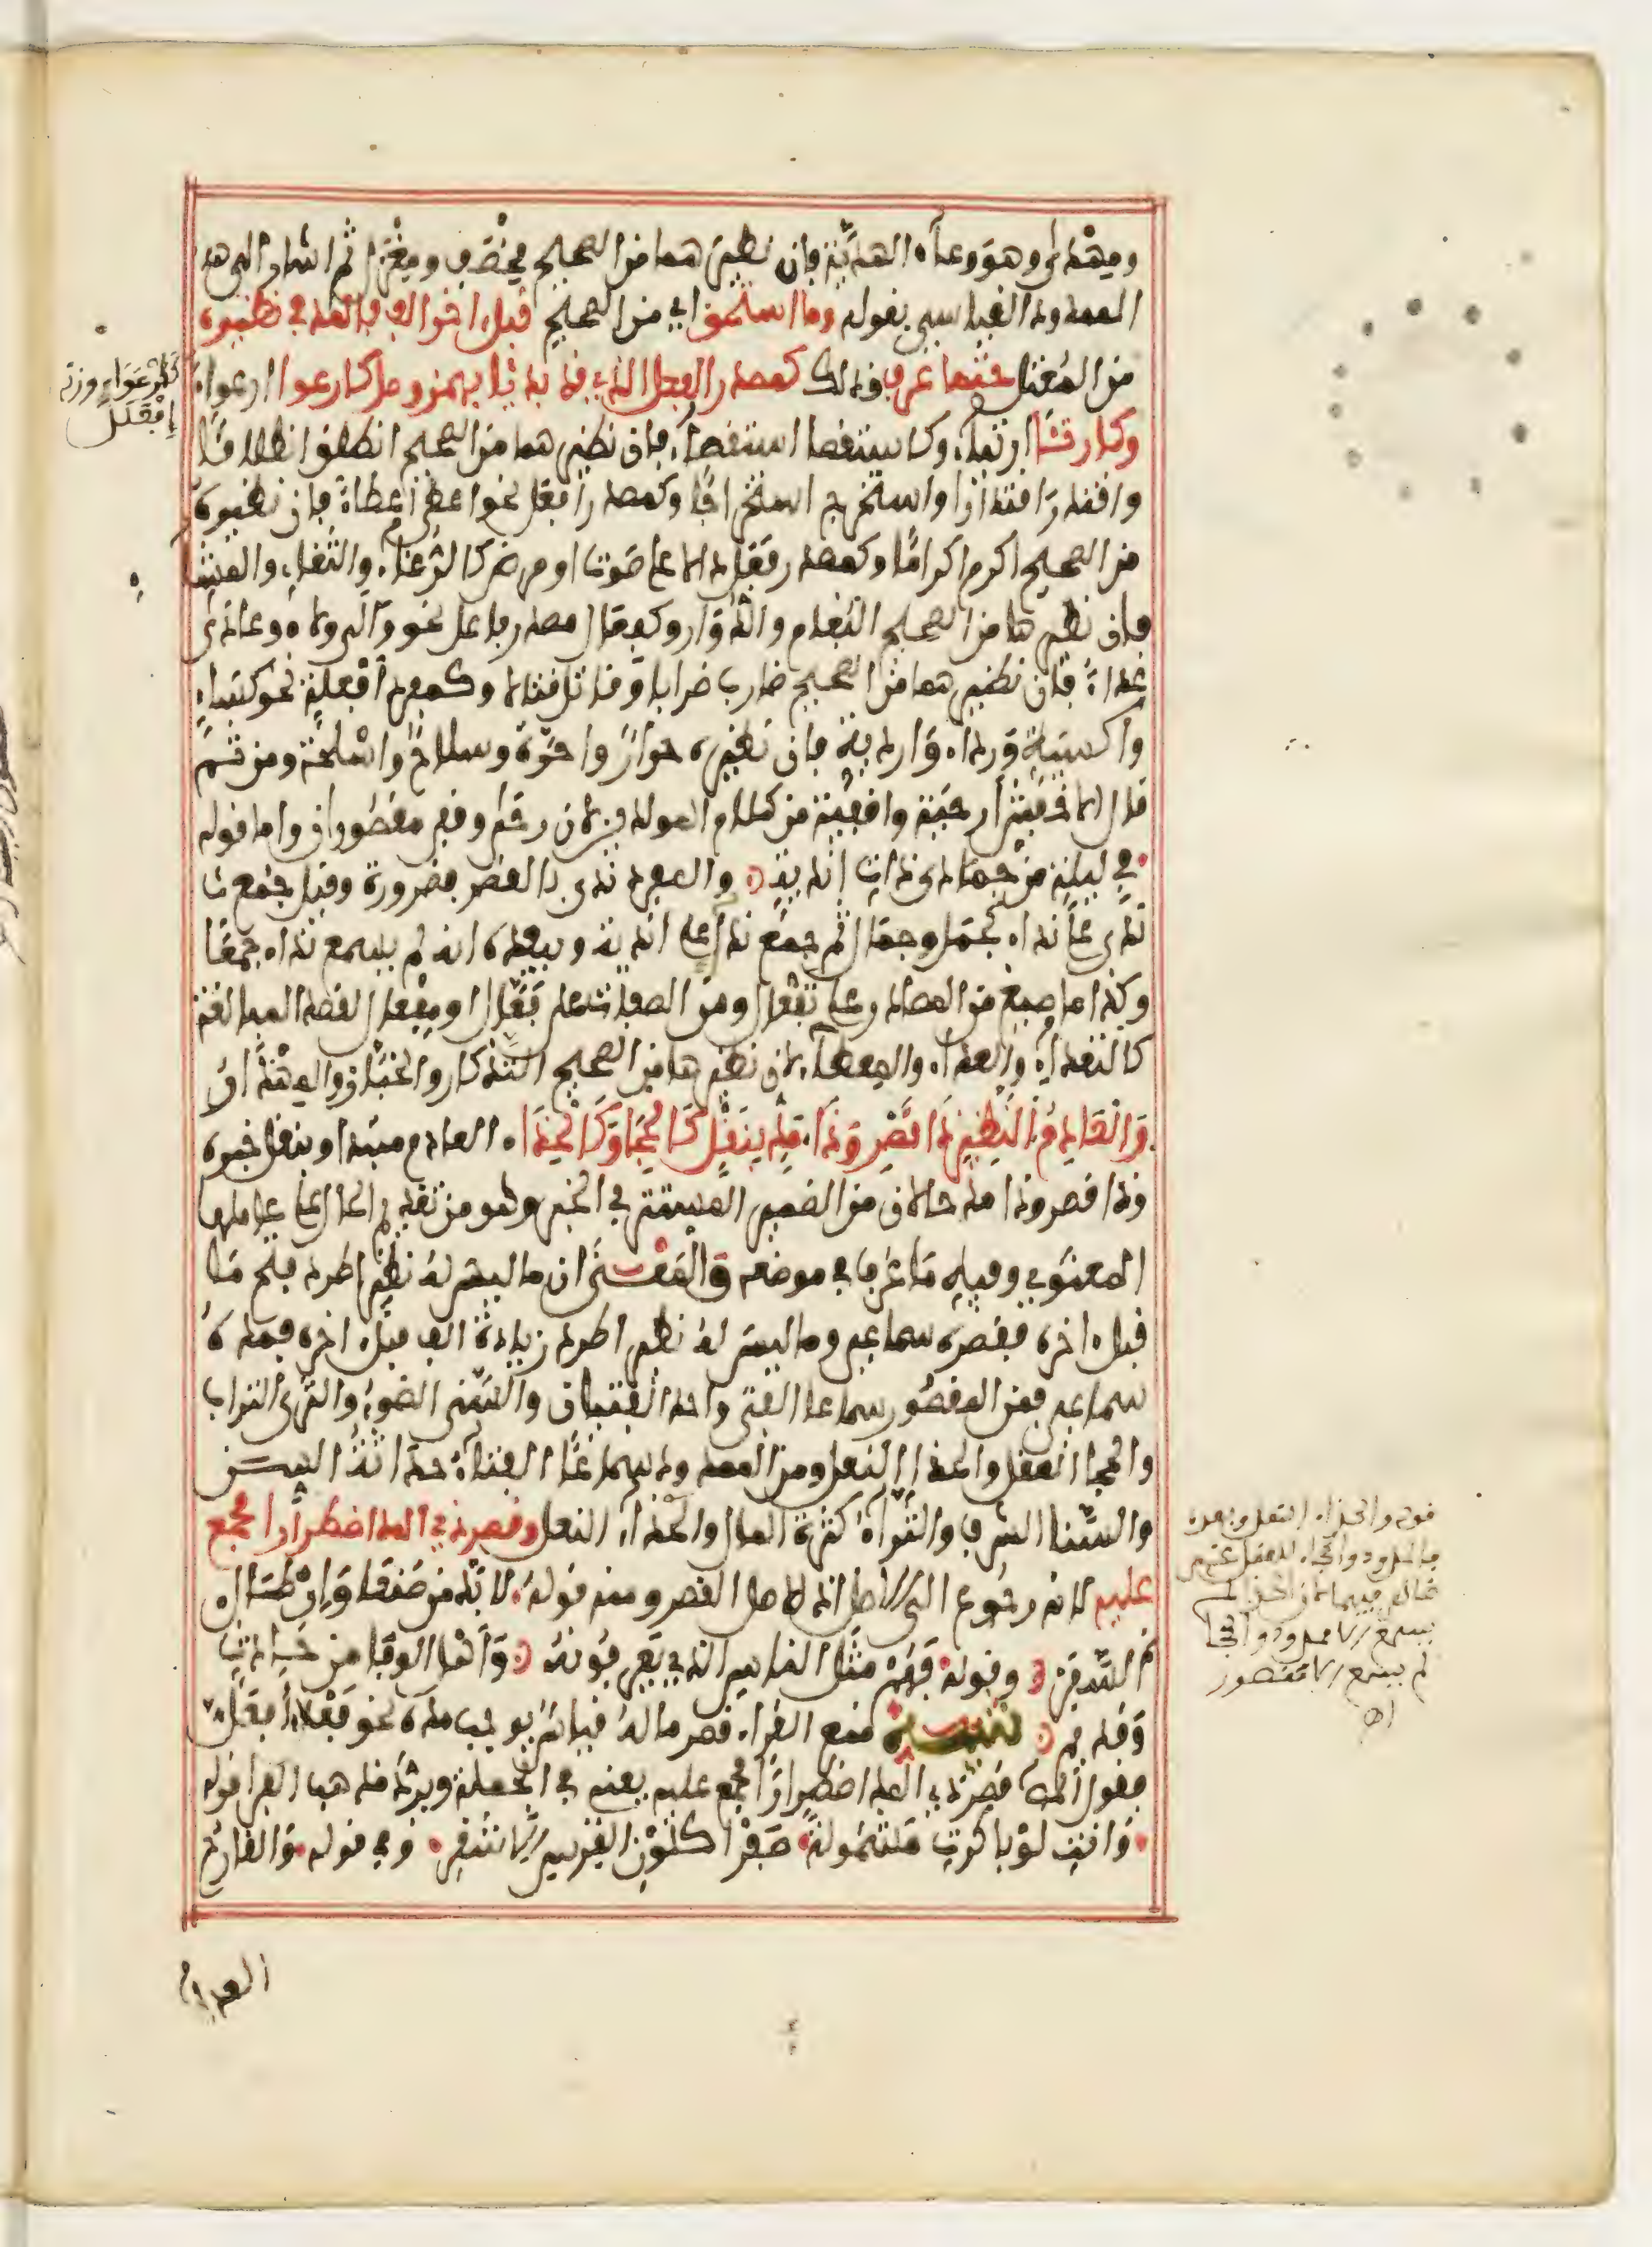 ومهدى وهو وعاء الهدية فإن نظيرهما من الصحيح مخصف ومغزل ثم اشار الى
الممدود القياسي بقوله وما استحق اي من الصحيح قبل اخر الف فالمد في نظيره
من المعتل حتما عرف وذلك كمصدر الفعل الذي قد بدئا بهمز وصل كارعوا ارعواء
وكارتئا ارتئاء وكاستقصا استقصاء فان نظيرهما من الصحيح انطلق انطلاقا
واقتدر اقتدارا واستخرج استخراجا وكمصدر افعل نحو اعطى اعطاء فإن نظيره
من الصحيح اكرم اكراما وكمصدر فعل دالا على صوت او مرض كالرغاء والثغاء والمشاء
فان نظيرها من الصحيح البغام والدوار وكفعال مصدر فاعل نحو والى ولاء وعادى
عداء فان نظيرهما من الصحيح ضارب ضرابا وقاتل قتالا وكمفرد افعلة نحو كساء
واكسية ورداء واردية فان نظيره حوار واحورة وسلاح واسلحة ومن ثم
قال الاخفش ارحية واقفية من كلام المولدين لان رحى وقفى مقصوران واما قوله
في ليلة من جمادى ذات اندية والمفرد ندى بالقصر فضرورة وقيل جمع
ندى على نداء كجمل وجمال ثم جمع نداء على اندية ويبعده انه لم يسمع نداء جمعا
وكذا ما صيغ من المصادر على تفعال ومن الصفات على فعال او مفعال لقصد المبالغة
كالتعداء والعداء والمعطاء لان نظيرها من الصحيح التذكار والخباز والمهذار
والعادم النظير ذا قصر وذا مد بنقل كالحجا وكالحذا العادم مبتدا وبنقل خبره
وذا قصر وذا مد حالان من الضمير المستتر في الخبر وهو من تقديم الحال على عاملها
المعنوي وفيه ما عرف في موضعه والمعنى ان ما ليس له نظير اطرد فتح ما
قبل اخره فقصره سماعي وما ليس له نظير اطرد زيادة الف قبل اخره فمده
سماعي فمن المقصور سماعا الفتى واحد الفتيان والسنى الضوء والثرى التراب
والحجا العقل والحذا النعل ومن الممدود سماعا الفتاء حداثة السن
والسنا الشرف والثراء كثرة المال والحذاء النعل وقصر ذي المد اضطرارا مجمع
عليه لانه رجوع الى الاصل اذ الاصل القصر ومنه قوله لا بد من صنعا وان طال
السفر وقوله فهم مثل الناس الذي يعرفونه واهل الوفا من حادث
وقديم تنبيه منع الفراء قصر ما له قياس يوجب مده نحو فعلاء افعل
فقول المص قصر ذي المد اضطرارا مجمع عليه يعني في الجملة ويرد مذهب الفرا قوله
وانت لو باكرت مشمولة صفرا كلون الفرس الاشقر وفي قوله والقارح
العدا
كارعواء وزنه
افعلل
قوله والحذاء النعل ونعده
بالمدود والحجا للعقل
لان الحذا لم
يسمع الا ممدودا والحجا
لم يسمع الا مقصور
اهـ